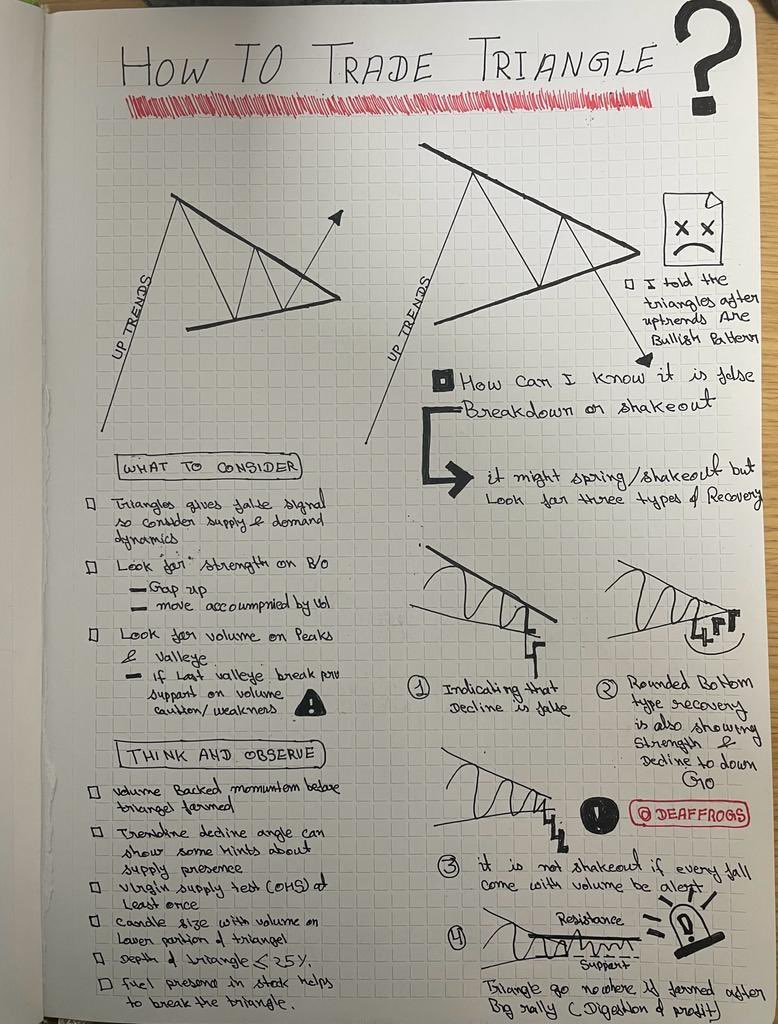 HOW TO TRADE TRIANGLE ?
UP TRENDS
WHAT TO CONSIDER
Triangles gives false signal
so consider supply & demand
dynamics
Look "for" strength on B/o
Gap up
move accoumpnied by vol
Look for volume on Peaks
& valleye
if Last valleye break prv
support on volume
caution/weakness
!
THINK AND OBSERVE
volume Backed momuntem before
triangel formed
Trendline decline angle can
show some hints about
supply presence
virgin supply test (OHS) at
Least once
candle size with volume on
Lower portion of triangel
Depth of triangle ≤ 25%.
fuel presene in stock helps
to break the triangle.
UP TRENDS
I told the
triangles after
uptrends Are
Bullish Pattern
How can I know it is false
Breakdown or shakeout
it might spring/shakeout but
Look for three types of Recovery
1 Indicating that
Decline is false
2 Rounded Bottom
type recovery
is also showing
Strength &
Decline to down
Go
@DEAFFROGS
3 it is not shakeout if every fall
come with volume be alert
4
Resistance
Support
Triangle go nowhere if formed after
Big rally (Digestion of profit)